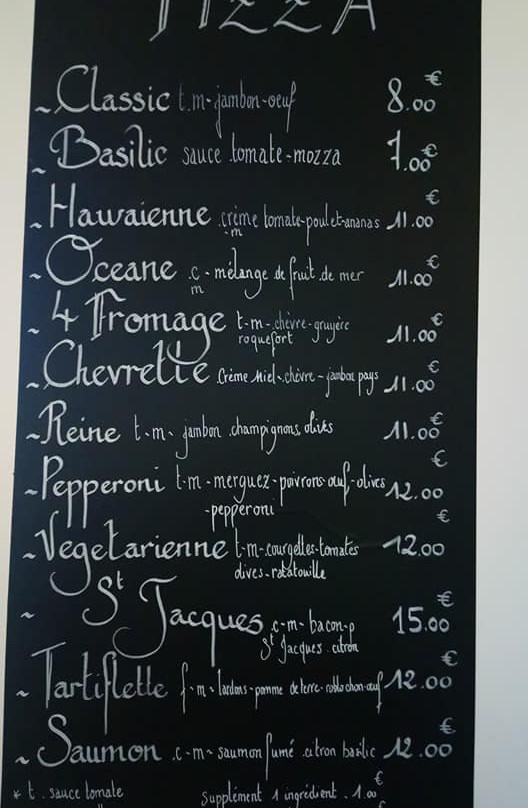 PIZZA
~ Classic t.m-jambon-oeuf 8.00€
~ Basilic sauce tomate-mozza 7.00€
~ Hawaienne crème tomate-poulet-ananas 11.00€
-m
~ Oceane c - mélange de fruit de mer 11.00€
m
~ 4 Fromage t-m-chèvre-gruyère 11.00€
roquefort
~ Chevrette Crème Miel-chèvre-jambon pays 11.00€
~ Reine t-m- jambon champignons, olives 11.00€
~ Pepperoni t-m-merguez-poivrons-œuf-olives 12.00€
-pepperoni
~ Vegetarienne t-m-courgettes-tomates 12.00€
olives-ratatouille
~ St Jacques c-m-bacon-p 15.00€
St Jacques citron
~ Tartiflette f-m-lardons-pomme de terre-roblochon-œuf 12.00€
~ Saumon c-m-saumon fumé citron basilic 12.00€
* t. sauce tomate Supplément 1 ingrédient. 1.00€